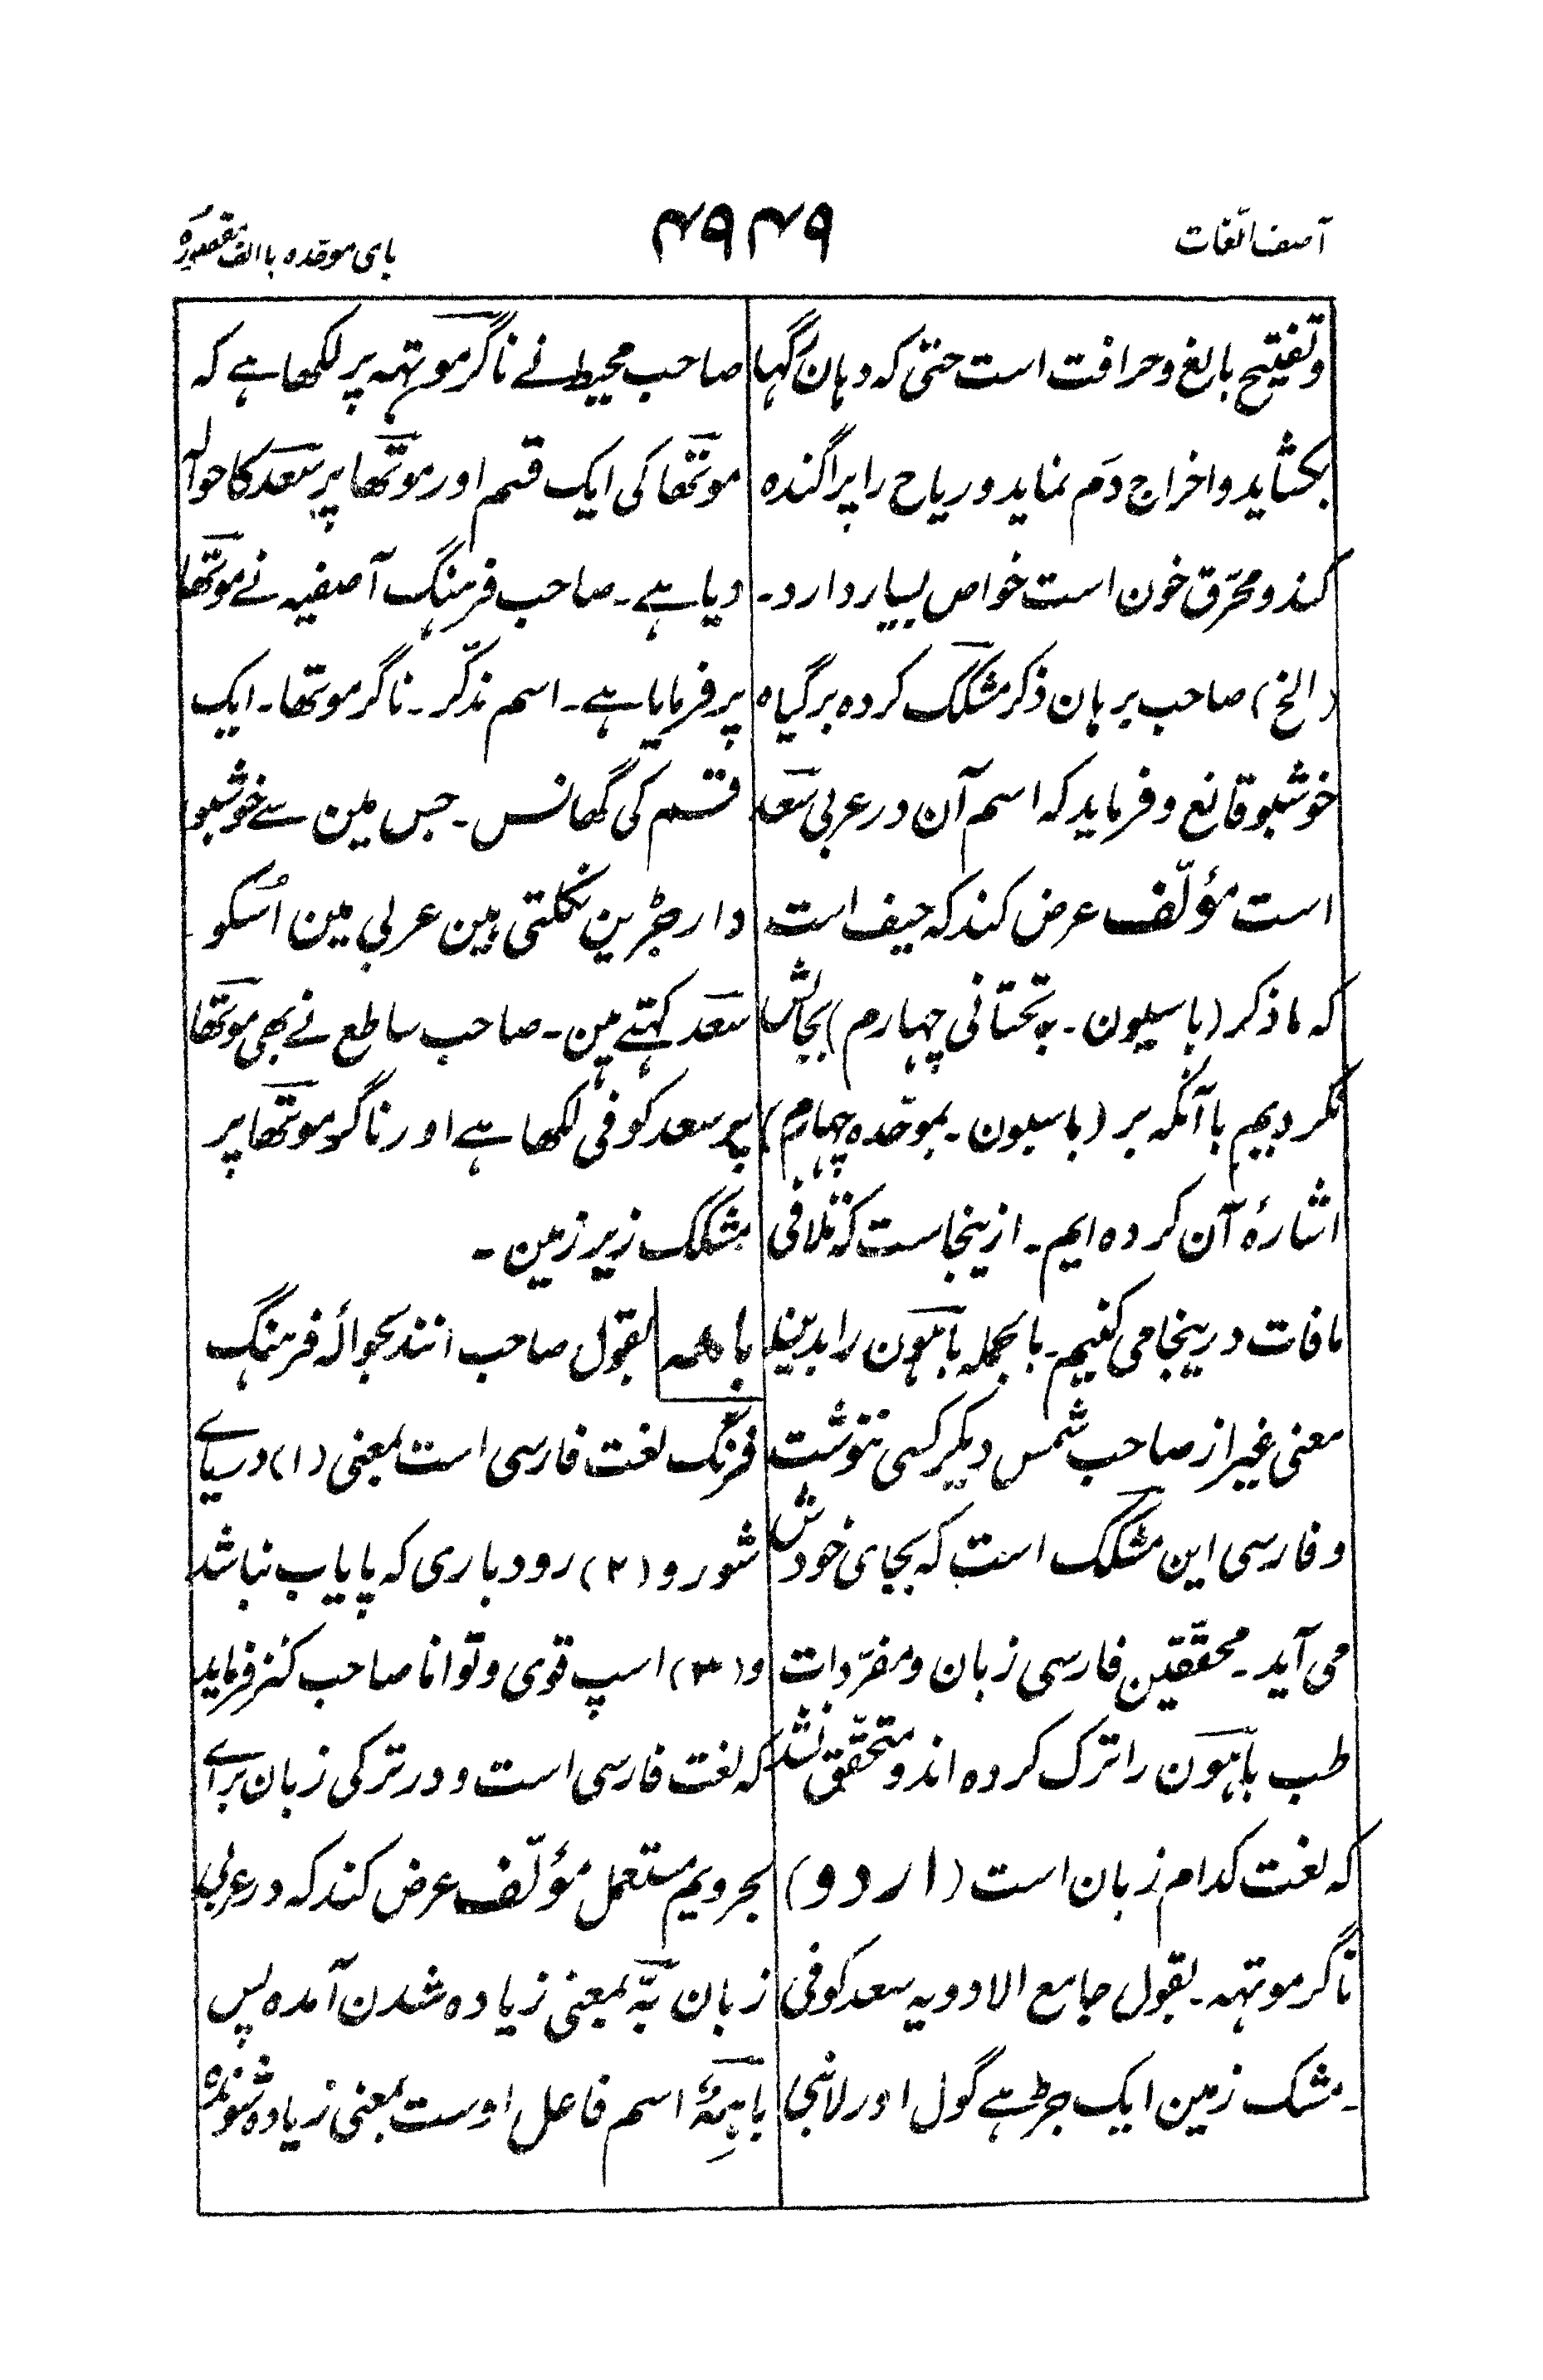 آصف اللّغات
۴۹۴۹
بای موحّده با الف مقصوره
وتفتیح بالغ وحرافت است حتّی که دہان رگہا
بکشاید واخراج دَم نماید وریاح را پراگنده
کند ومحرّق خون است خواص بسیار دارد۔
(الخ) صاحب برہان ذکر مشکک کرده بر گیاه
خوشبو قانع وفرماید که اسم آن در عربی سعد
است مؤلّف عرض کند که حیف است
که ما ذکر (باسیلون۔ بہ تحتانی چہارم) بجایش
نکردیم با آنکه بر (باسبلون۔ بموحّده چہارم)
اشارۂ آن کرده ایم۔ ازینجاست که تلافی
مافات درینجا می کنیم۔ بالجمله باہون را بدین
معنی غیر از صاحب شمس دیگر کسی ننوشت
وفارسی این مشکک است که بجای خودش
می آید۔ محقّقین فارسی زبان ومفرّدات
طب باہون را ترک کرده اند و متحقّق نشد
که لغت کدام زبان است (اردو)
ناگر موتہہ۔ بقول جامع الادویہ سعد کوفی
۔مشک زمین ایک جڑ ہے گول اور لانبی
صاحب محیط نے ناگر موتہہ پر لکھا ہے کہ
موتھا کی ایک قسم اور موتھا پر سعد کا حوالہ
دیا ہے۔ صاحب فرہنگ آصفیہ نے موتھا
پر فرمایا ہے۔ اسم مذکّر۔ ناگر موتھا۔ ایک
قسم کی گھانس۔ جس مین سے خوشبو
دار جڑین نکلتی ہین عربی مین اُسکو
سعد کہتے ہین۔ صاحب ساطع نے بھی موتھا
پر سعد کوفی لکھا ہے اور ناگر موتھا پر
مشکک زیر زمین۔
باہمہ بقول صاحب انند بحوالۂ فرہنگ
فرنگ لغت فارسی است بمعنی (۱) دریاے
شور و (۲) رودباری که پایاب نباشد
و (۳) اسپ قوی وتوانا صاحب کنز فرماید
که لغت فارسی است ودر ترکی زبان براے
بحر ویم مستعمل مؤلّف عرض کند که در عربی
زبان بمعنی زیاده شدن آمده پس
باہمۂ اسم فاعل اوست بمعنی زیاده شونده